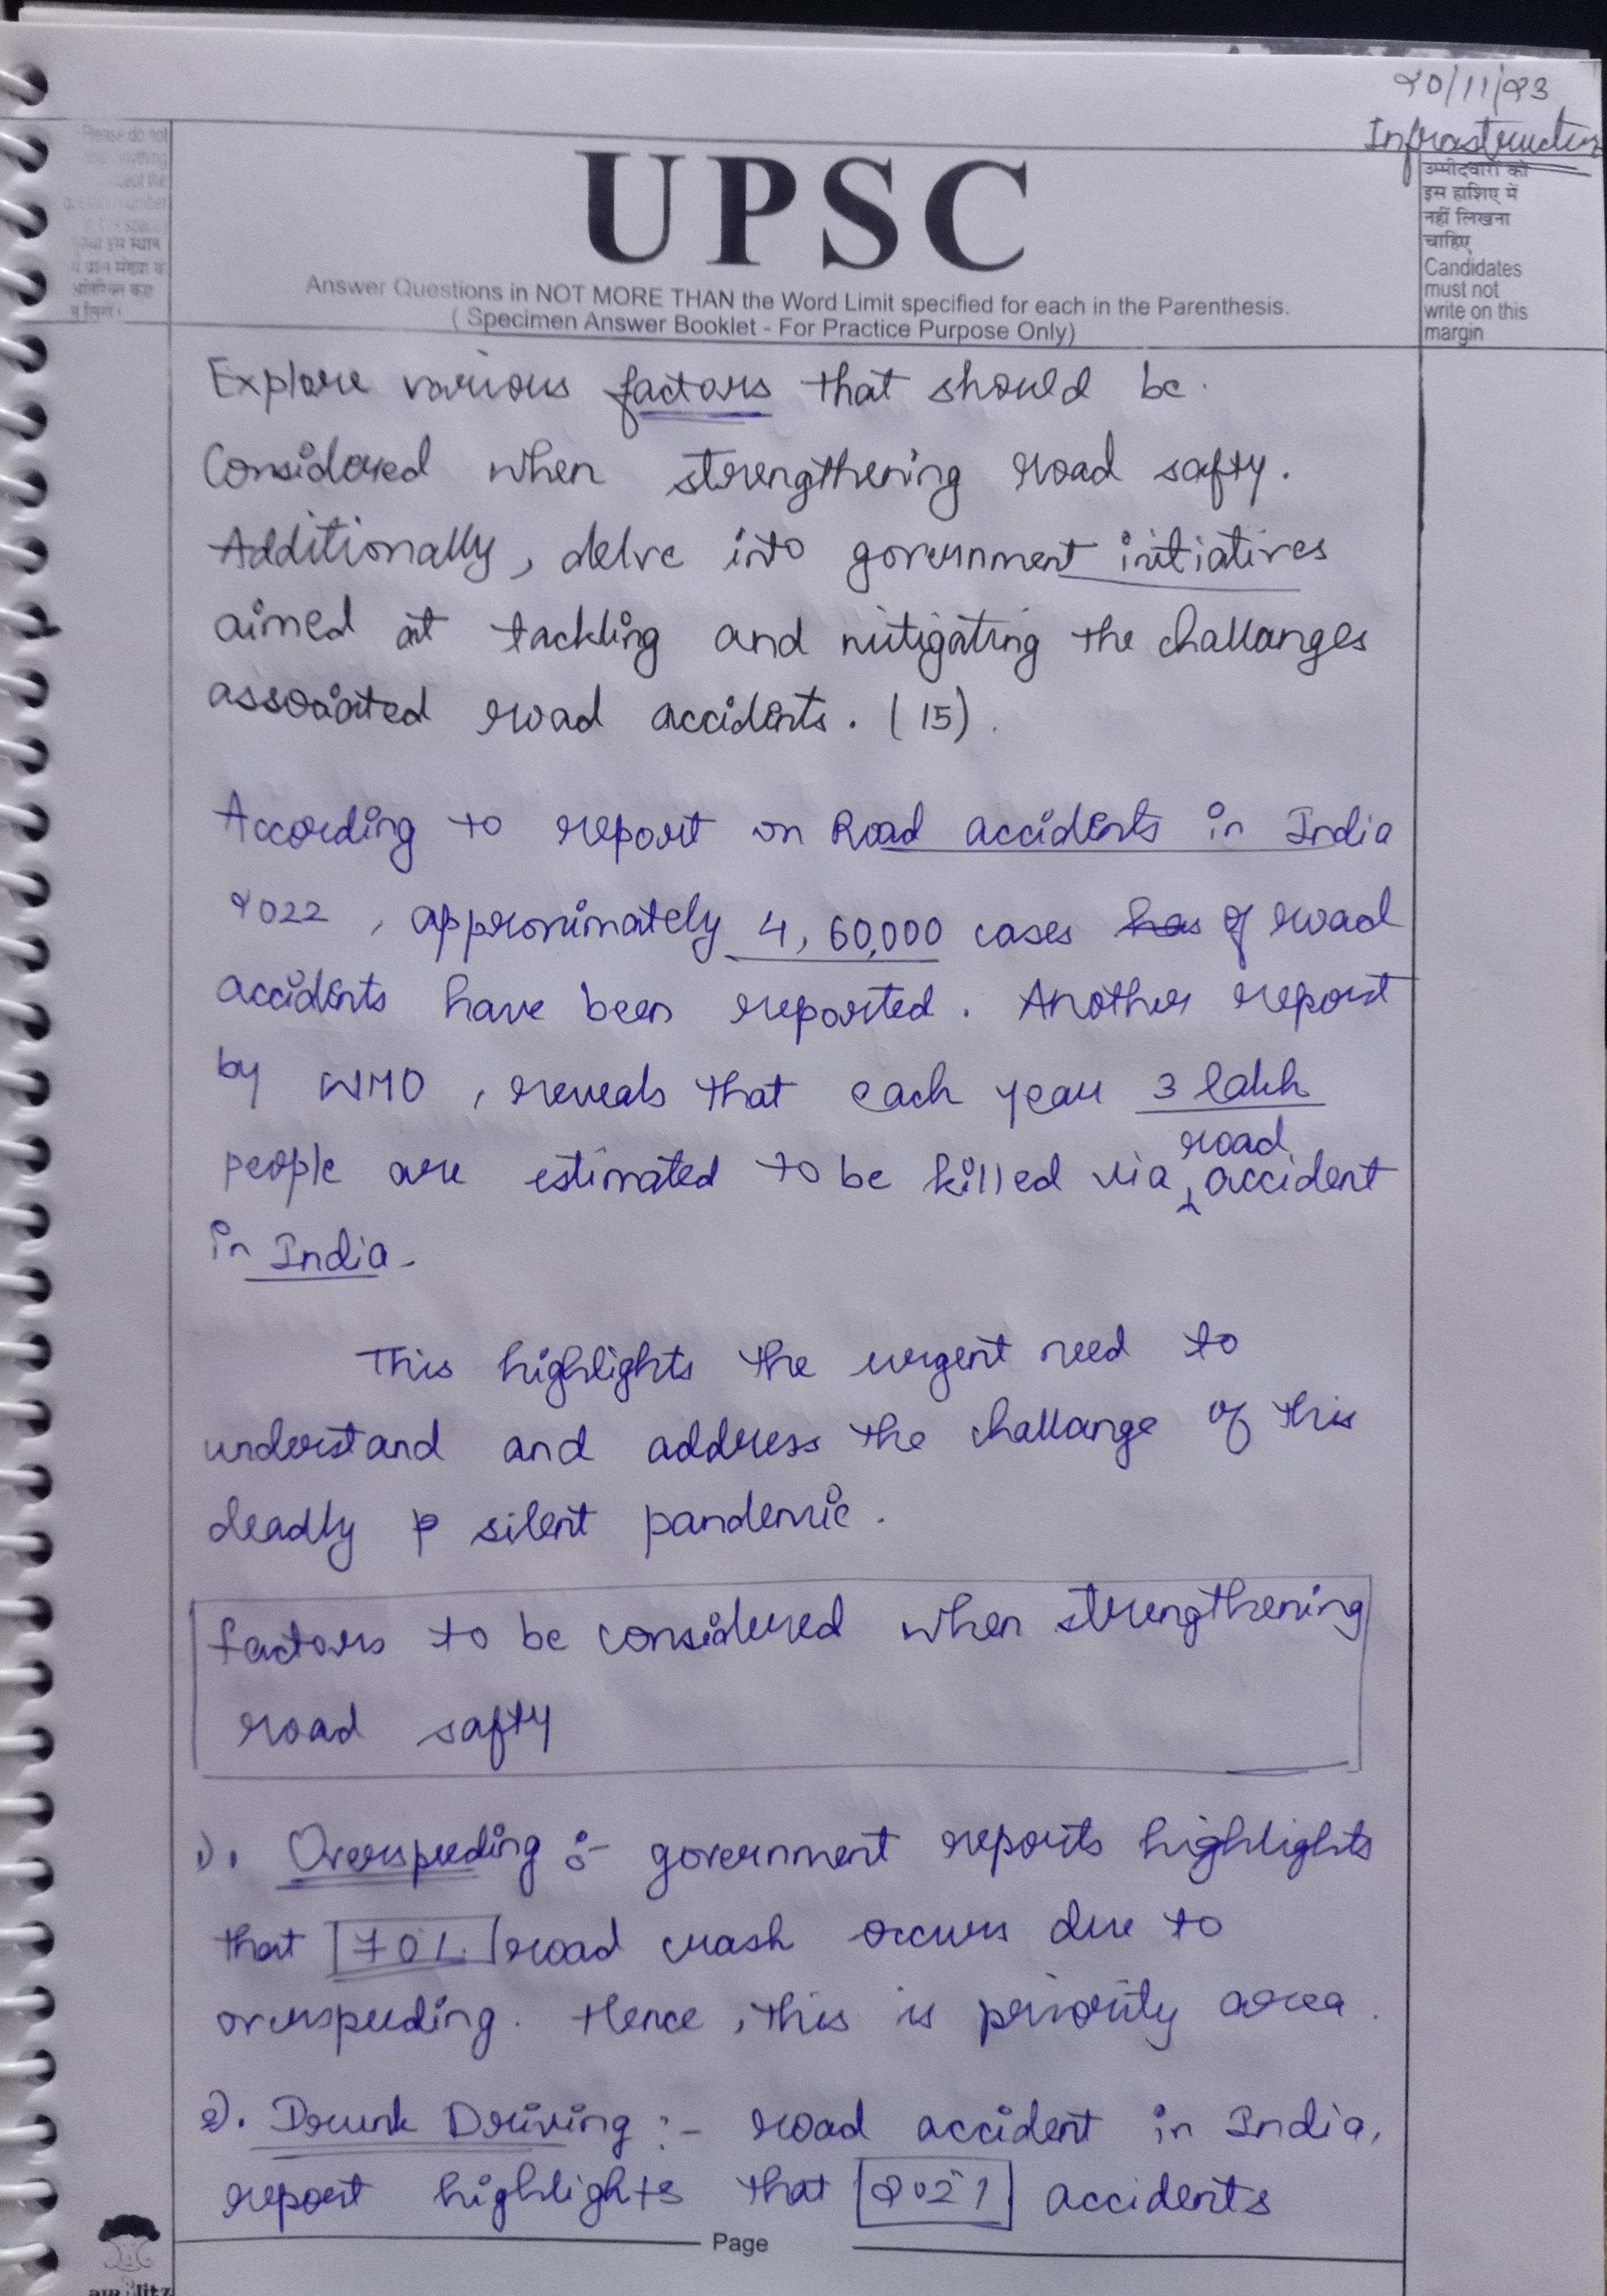 20/11/23
Infrastructure
Please do not
anything
cept the
question number
in this space
कृपया इस स्थान
में प्रश्न संख्या के
अतिरिक्त कुछ
न लिखें।
UPSC
Answer Questions in NOT MORE THAN the Word Limit specified for each in the Parenthesis.
( Specimen Answer Booklet - For Practice Purpose Only)
उम्मीदवारों को
इस हाशिए में
नहीं लिखना
चाहिए
Candidates
must not
write on this
margin
Explore various factors that should be
Considered when strengthening road safty.
Additionally, delve into government initiatives
aimed at tackling and mitigating the challanges
associated road accidents. (15).
According to report on Road accidents in India
2022, approximately 4,60,000 cases has of road
accidents have been reported. Another report
by WHO, reveals that each year 3 lakh
people are estimated to be killed via road accident
in India.
This highlights the urgent need to
understand and address the challange of this
deadly p silent pandemic.
factors to be considered when strengthening
road safty
1). Overspeeding :- government reports highlights
that 70% road crash occurs due to
overspeeding. Hence, this is priority area.
2). Drunk Driving :- road accident in India,
report highlights that 2021 accidents
Page